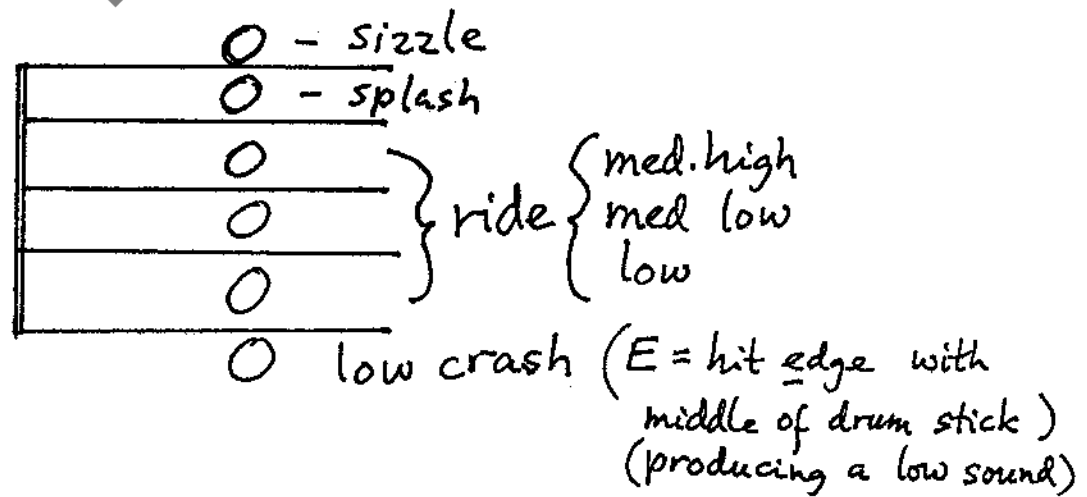 - sizzle
- splash
ride
med. high
med low
low
low crash (E = hit edge with
middle of drum stick)
(producing a low sound)